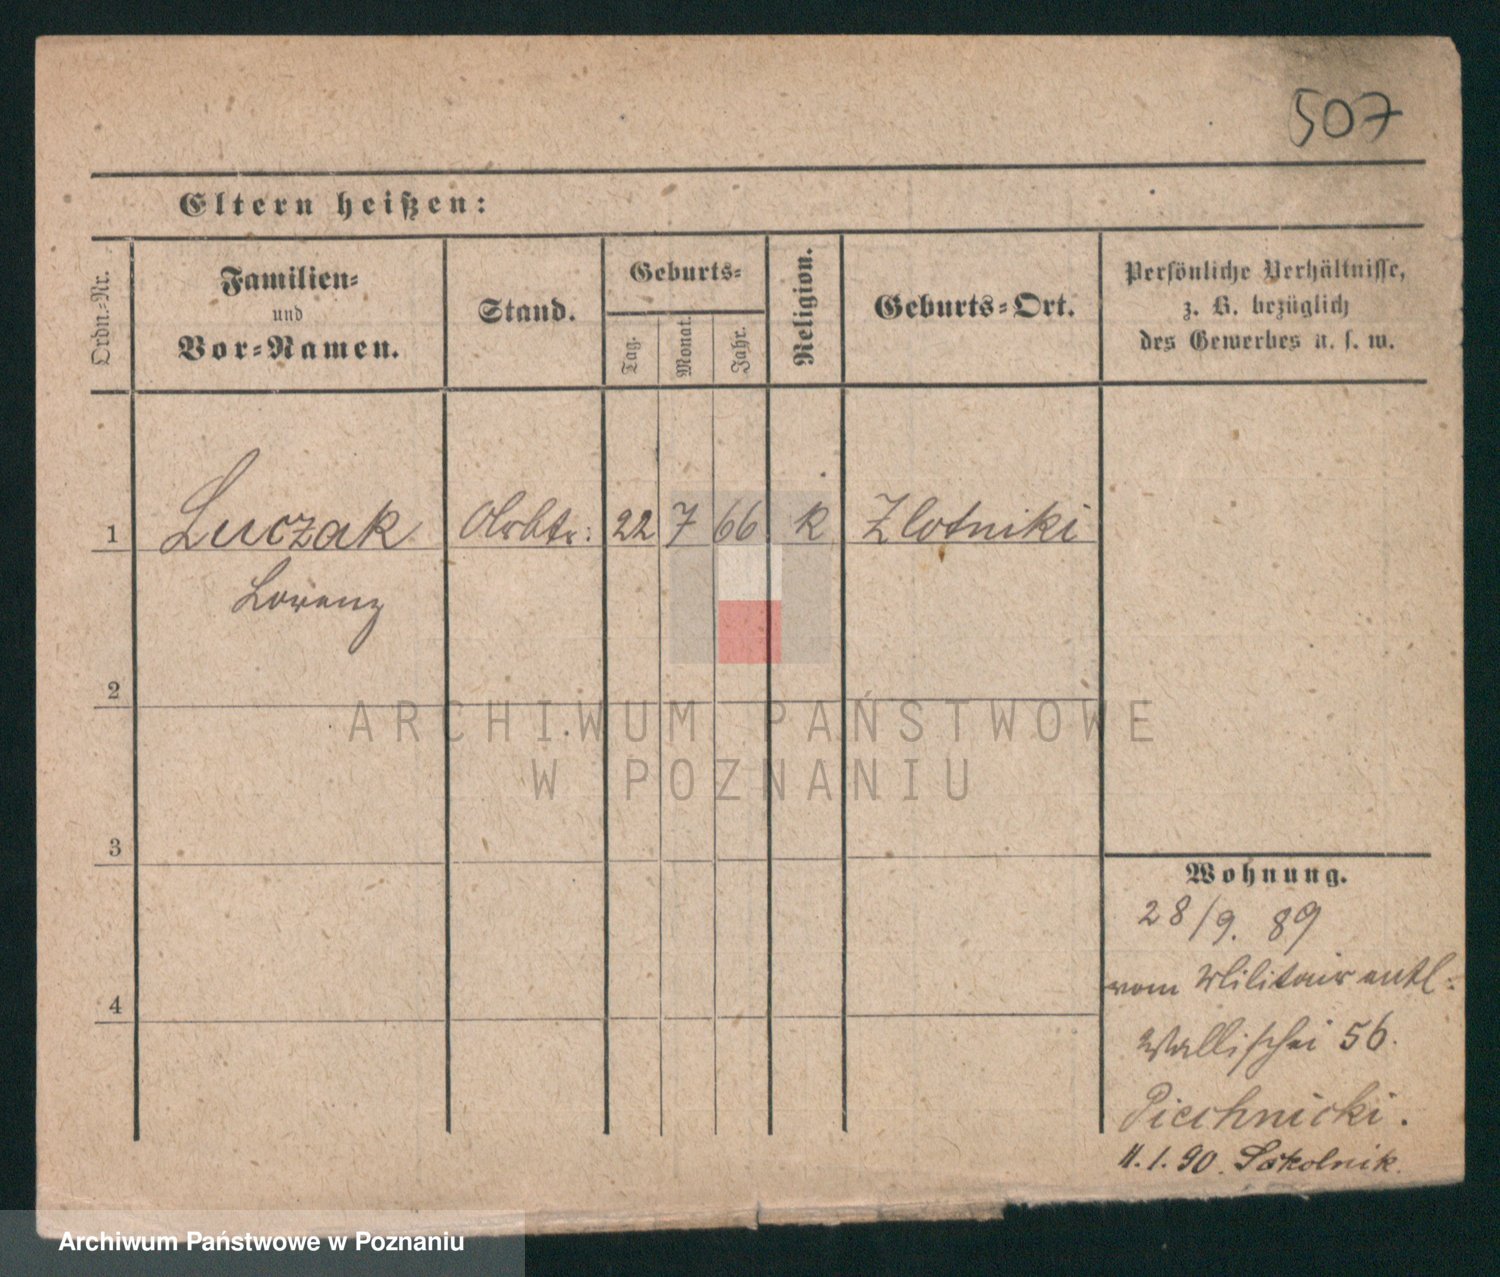 507
Eltern heißen:
Ordn.-Nr.
Familien-
und
Vor-Namen.
Stand.
Geburts-
Tag.
Monat.
Jahr.
Religion.
Geburts-Ort.
Persönliche Verhältnisse,
z. B. bezüglich
des Gewerbes u. s. w.
1 Luczak Arbtr: 22 7 66 k Zlotniki
Lorenz
2
3
4
Wohnung.
28/9. 89
vom Militair entl:
Wallischei 56.
Piechnicki.
11.1.90. Sokolnik.
ARCHIWUM PAŃSTWOWE
W POZNANIU
Archiwum Państwowe w Poznaniu